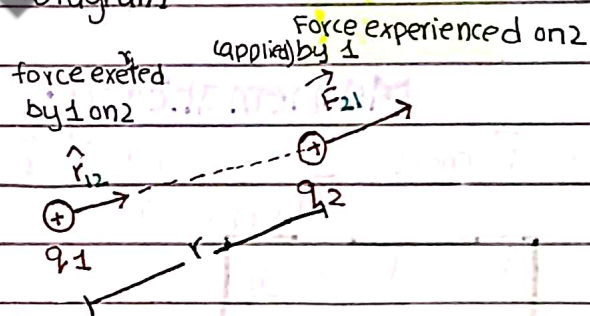 Diagram
Force experienced on 2
(applied) by 1
force exerted
by 1 on 2
F21
r̂12
q2
q1
r